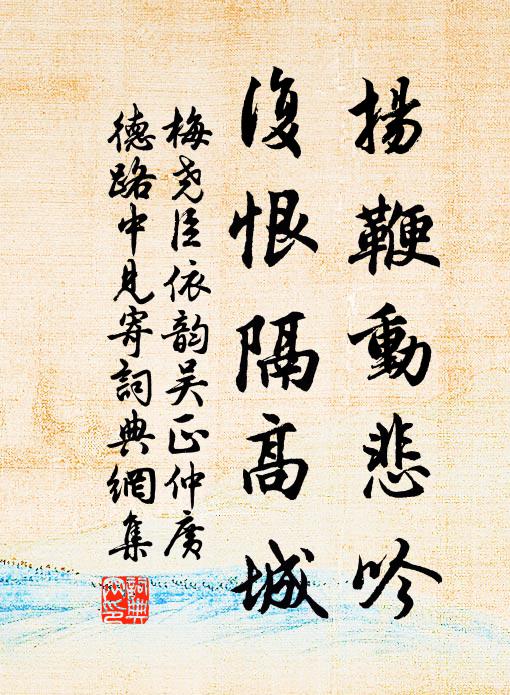 揚鞭動悲吟
復恨隔高城
梅堯臣依韻吳正仲廣
德路中見寄詞典網集